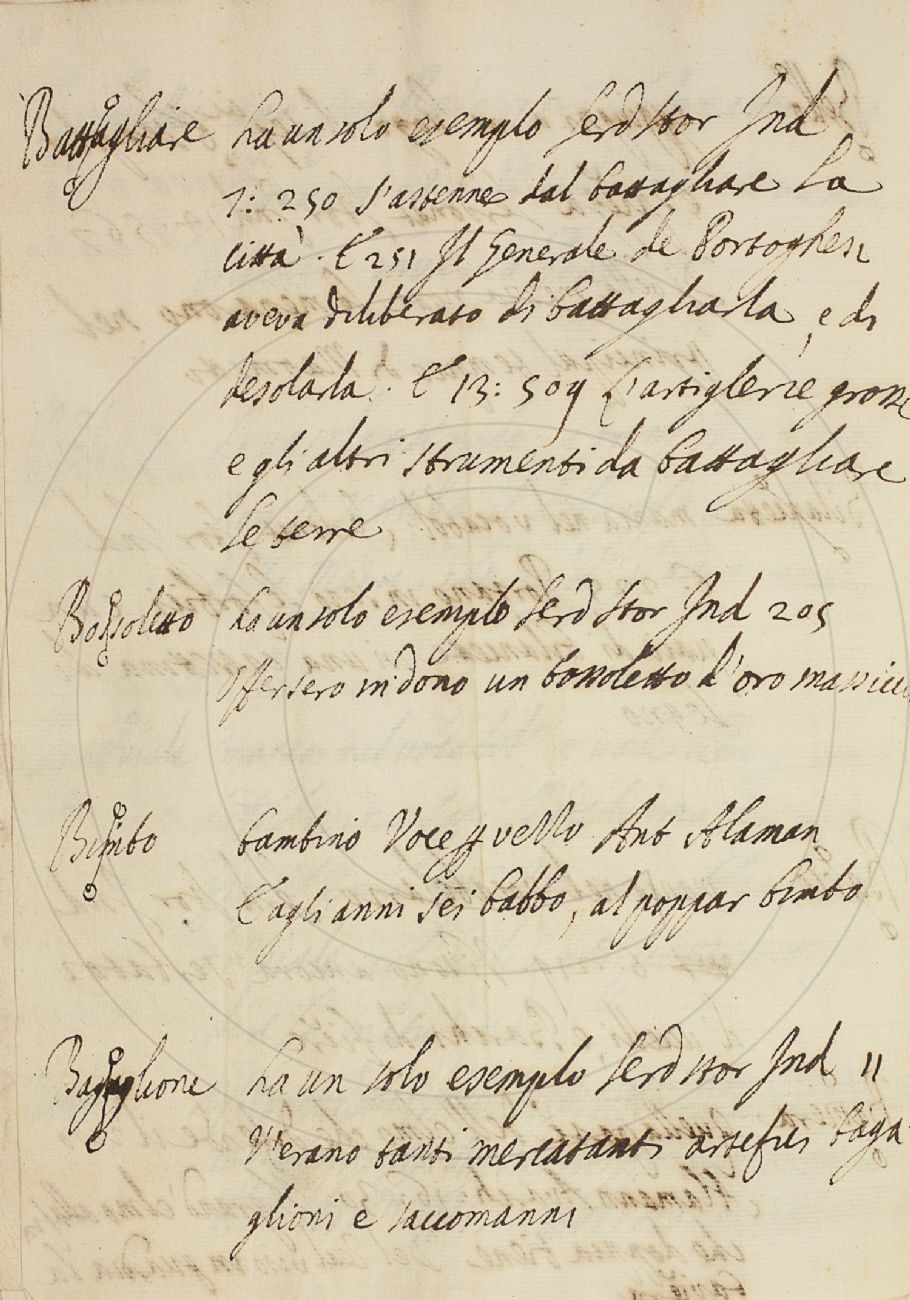 Battagliare ha un solo esempio Serd Stor Ind
7: 250 S'astenne dal battagliare La
città. E 251 Il Generale de Portoghesi
aveva diliberato di battagliarla, e di
desolarla. E 13: 509 L'artiglerie grosse
e gli altri strumenti da battagliare
le terre
Bossoletto ha un solo esempio Serd Stor Ind 205
Offersero in dono un bossoletto d'oro massiccio
Bimbo bambino Voce Ant Alaman
E agli anni sei babbo, al poppar bimbo
Bagaglione ha un solo esempio Serd Stor Ind 11
V'erano tanti mercatanti artefici baga
glioni e saccomanni